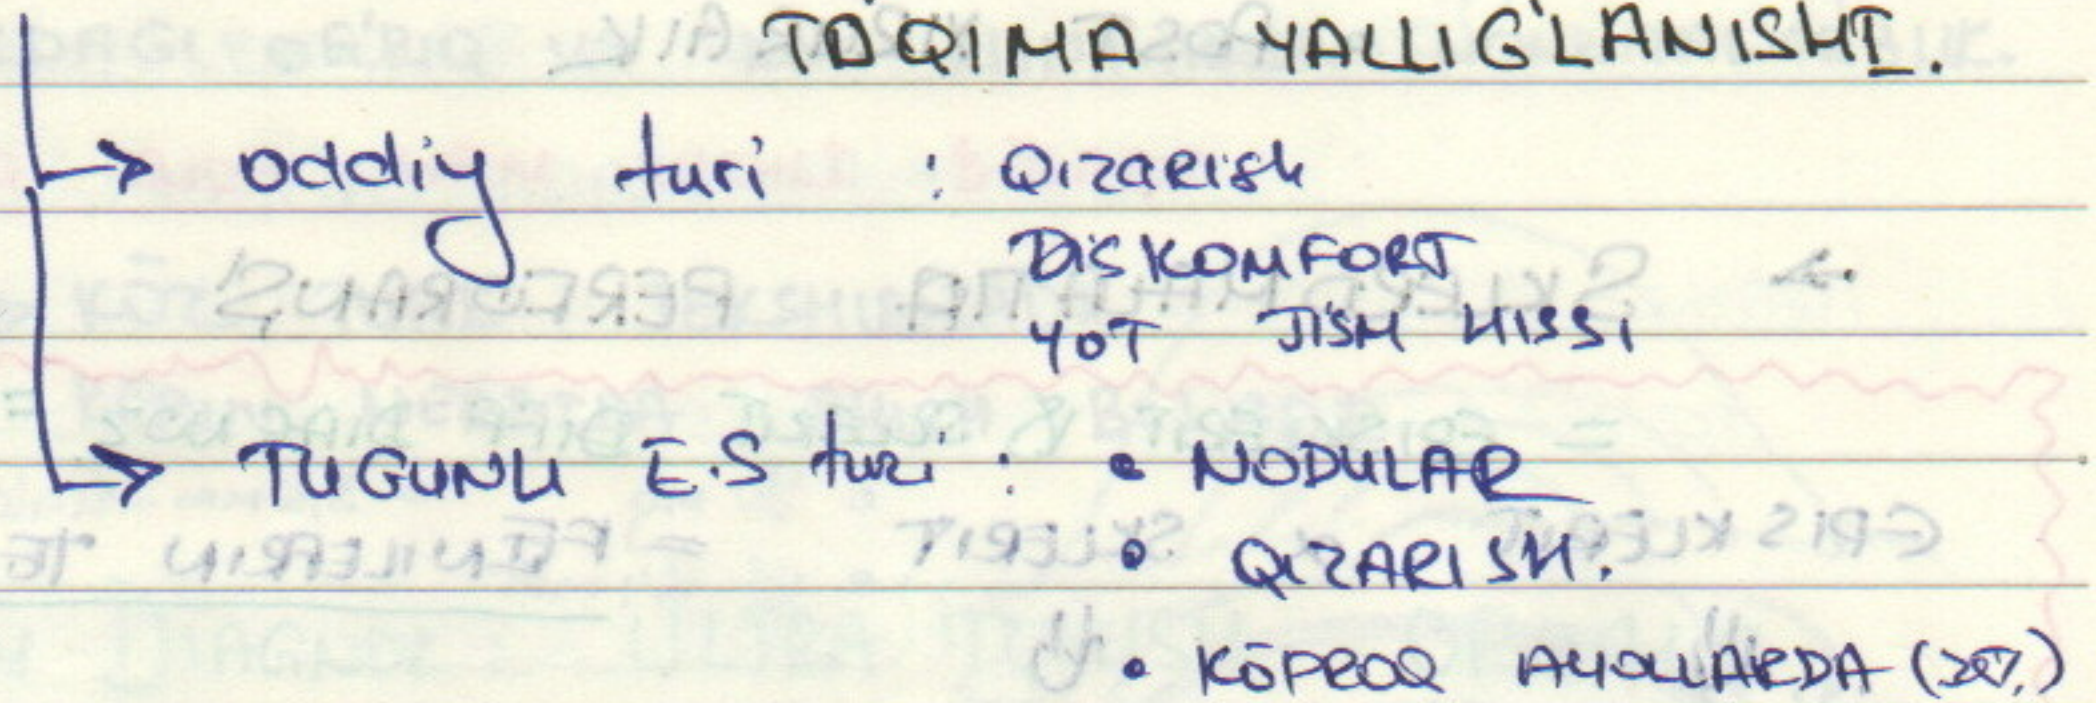 TO'QIMA YALLIG'LANISHI.
→ oddiy turi : QIZARISh
DISKOMFORT
YOT JISM HISSI
→ TUGUNLI E.S turi : • NODULAR
• QIZARISH.
• KŌPROQ AYOLLARDA